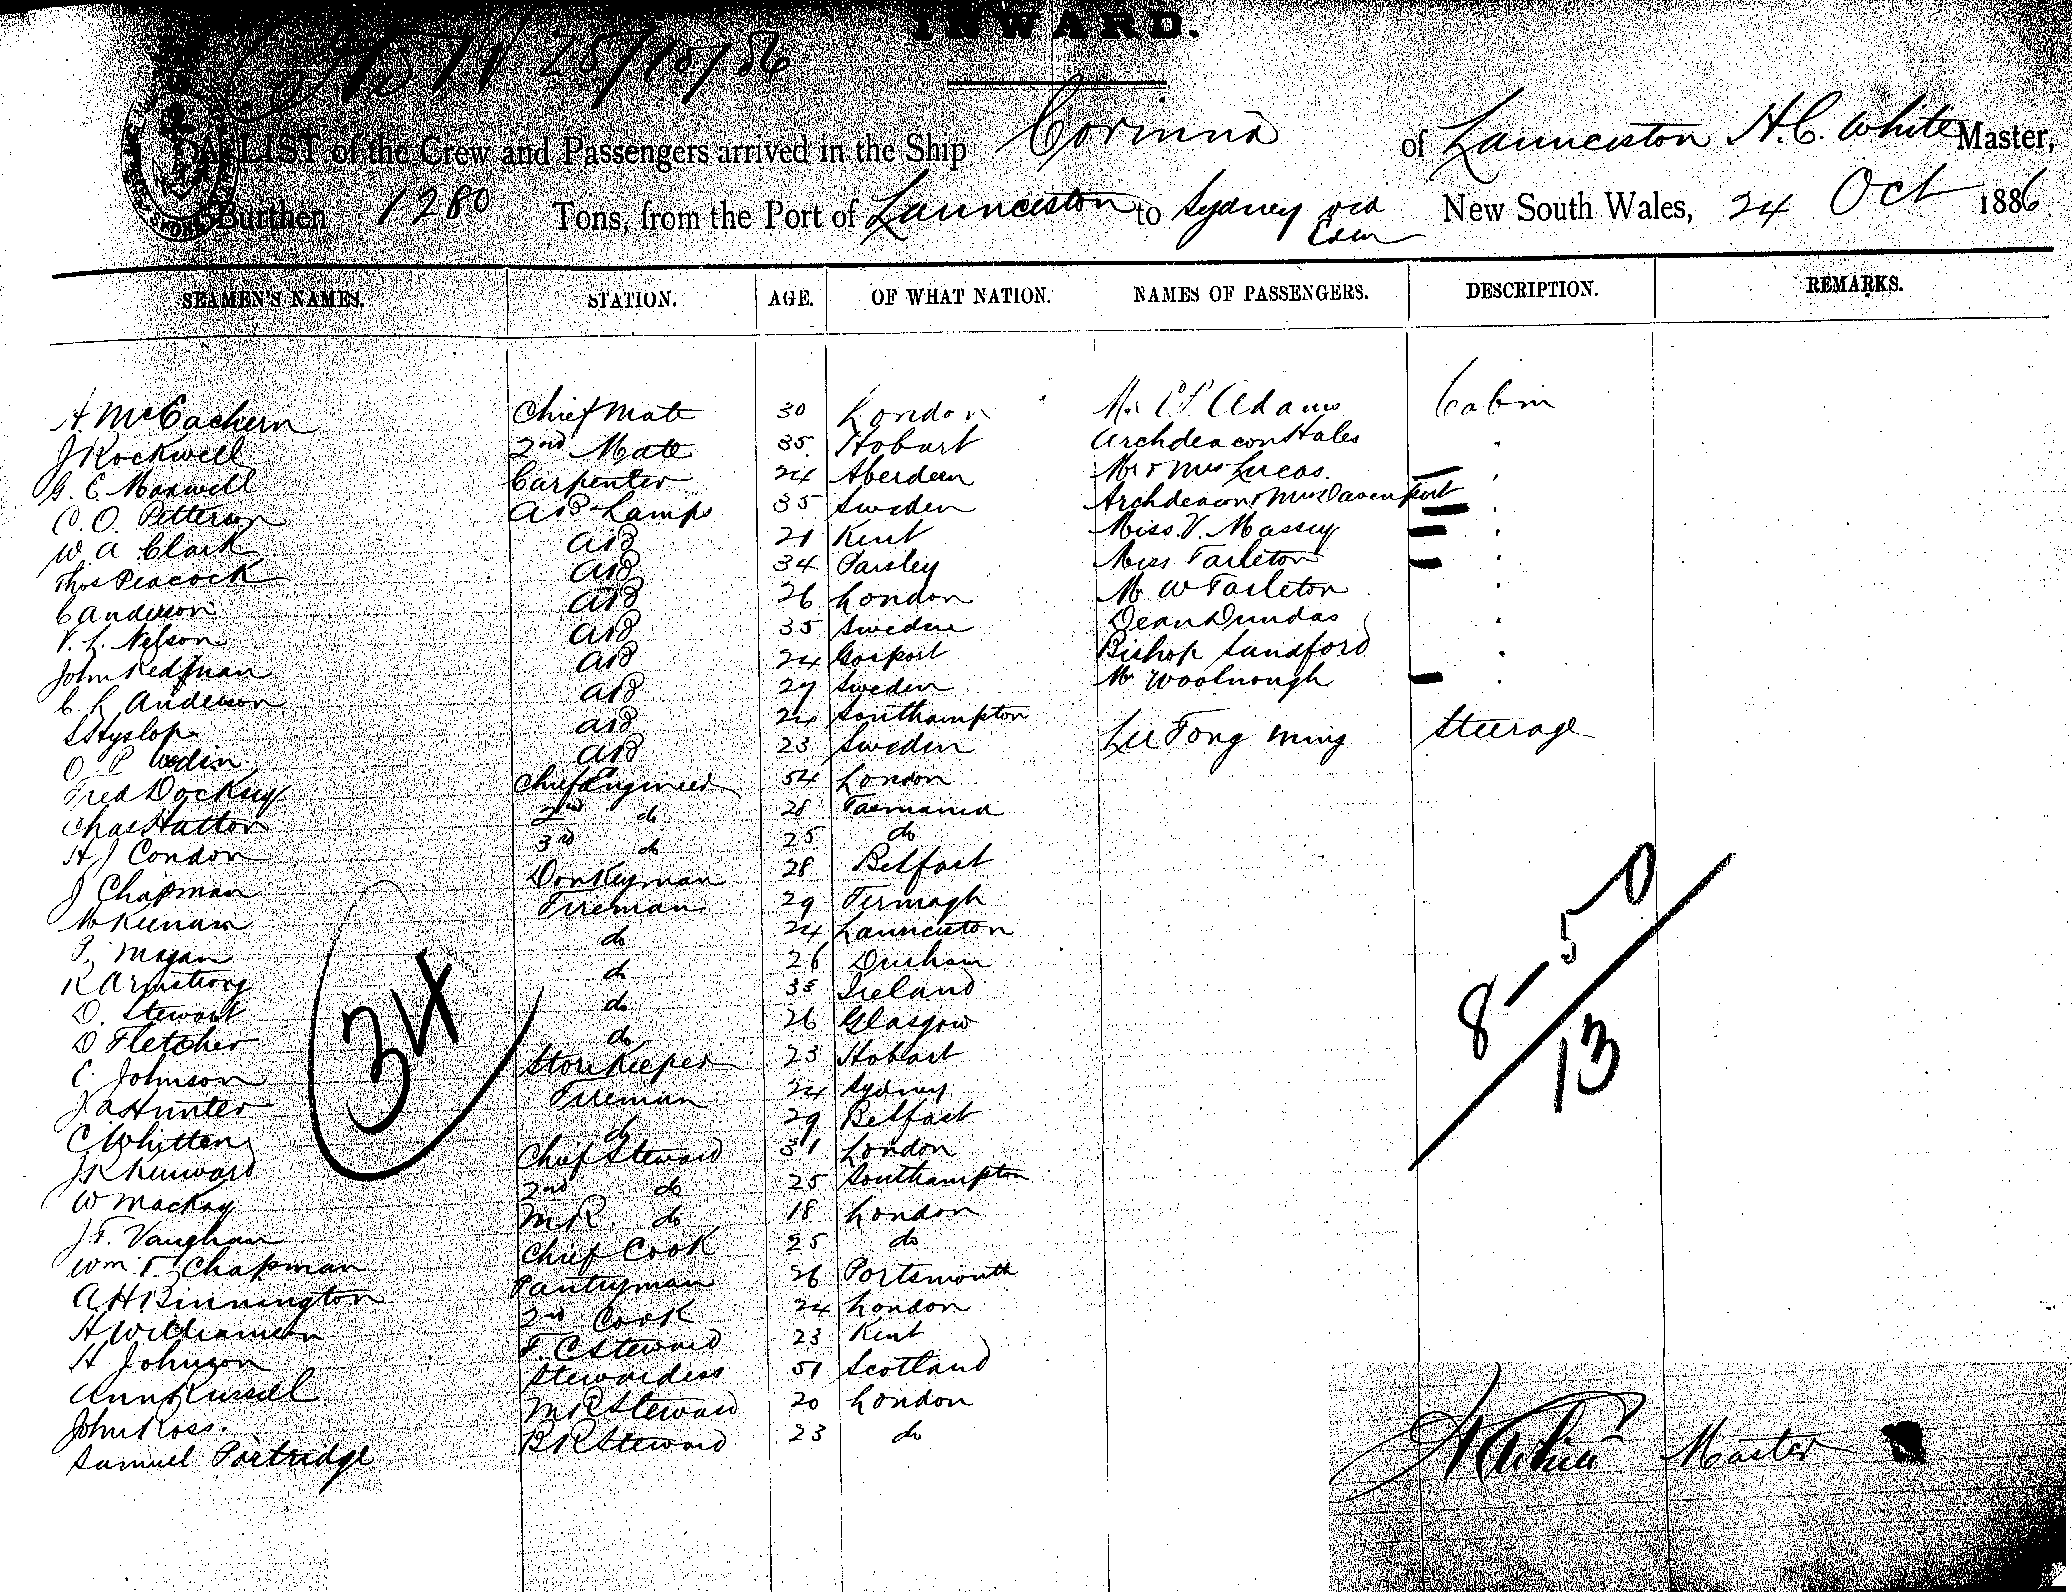 INWARD.
25/10/86
A LIST of the Crew and Passengers arrived in the Ship Corinna of Launceston H.C. White Master,
Burthen 1280 Tons, from the Port of Launceston to Sydney via Eden New South Wales, 24 Oct 1886
SEAMEN'S NAMES. STATION. AGE. OF WHAT NATION. NAMES OF PASSENGERS. DESCRIPTION. REMARKS.
A. McEachern Chief Mate 30 London Mr Adams Cabin
J Rockwell 2nd Mate 35 Hobart Archdeacon Hales "
G. C. Maxwell Carpenter 24 Aberdeen Mr & Mrs Lucas "
C. O. Petterson AB Lamps 35 Sweden Archdeacon & Mrs Davenport "
W. A Clark AB 21 Kent Miss V. Massey "
Thos Peacock AB 34 Paisley Miss Tarleton "
C Anderson AB 26 London Mr W Tarleton "
V. L. Nelson AB 35 Sweden Dean Dundas "
John Redman AB 24 Gosport Bishop Sandford "
C L Anderson AB 29 Sweden Mr Woolnough "
S Hyslop AB 24 Southampton
O. P. Wedin AB 23 Sweden Lee Fong Ming Steerage
Fred Dockery Chief Engineer 54 London
Chas Hatton 2nd do 28 Tasmania
H J Condon 3rd do 25 do
J Chapman Donkeyman 28 Belfast
M Keenan Fireman 29 Fermagh
T. Magan do 24 Launceston
R Armstrong do 26 Durham
D. Stewart do 35 Ireland
D Fletcher do 26 Glasgow
C Johnson Storekeeper 23 Hobart
J A Hunter Fireman 24 Sydney
C Whitten do 29 Belfast
J R Kenward Chief Steward 31 London
W Mackay 2nd do 25 Southampton
J. F. Vaughan M.R. do 18 London
Wm T. Chapman Chief Cook 25 do
A H Binnington Pantryman 26 Portsmouth
H Williamson 2nd Cook 24 London
H Johnson F. C Steward 23 Kent
Ann Russell Stewardess 51 Scotland
John Ross. M R Steward 20 London
Samuel Partridge B R Steward 23 do
34
8-50
13
Master